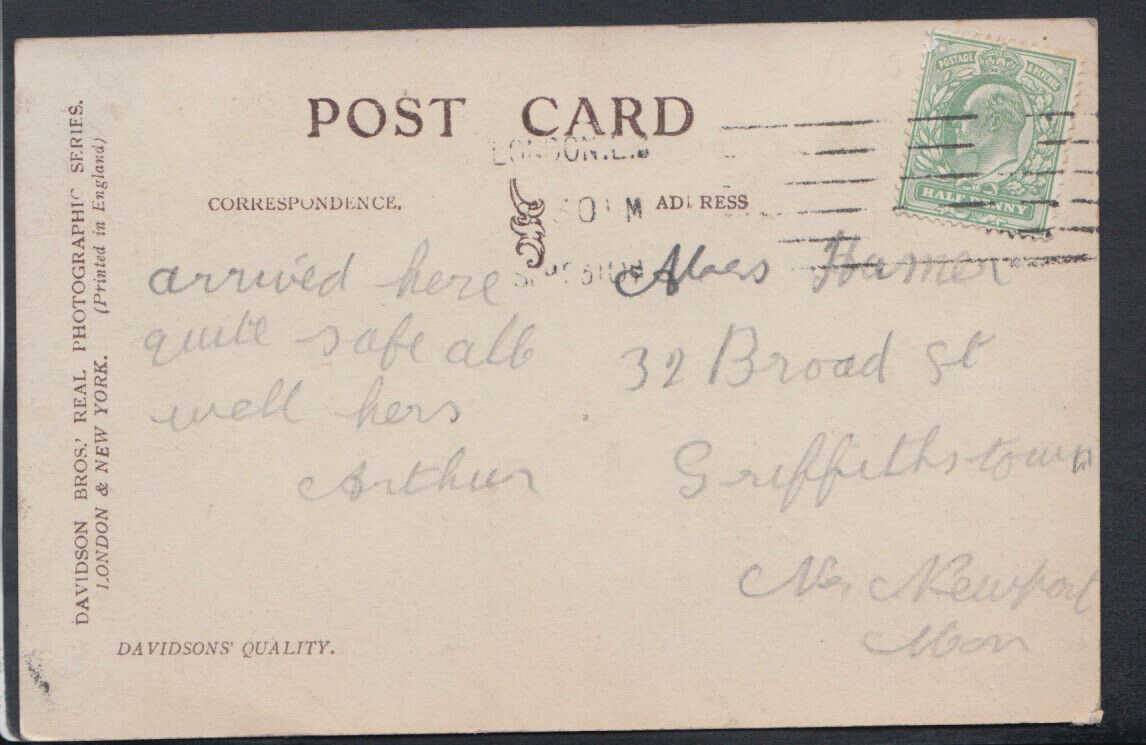 POST CARD
LONDON.E.
30 PM
CORRESPONDENCE.
ADDRESS
POSTAGE REVENUE
HALFPENNY
DAVIDSON BROS.' REAL PHOTOGRAPHIC SERIES.
LONDON & NEW YORK. (Printed in England)
arrived here
quite safe all
well hers
Arthur
Hamer
32 Broad St
Griffithstown
Nr Newport
Mon
DAVIDSONS' QUALITY.